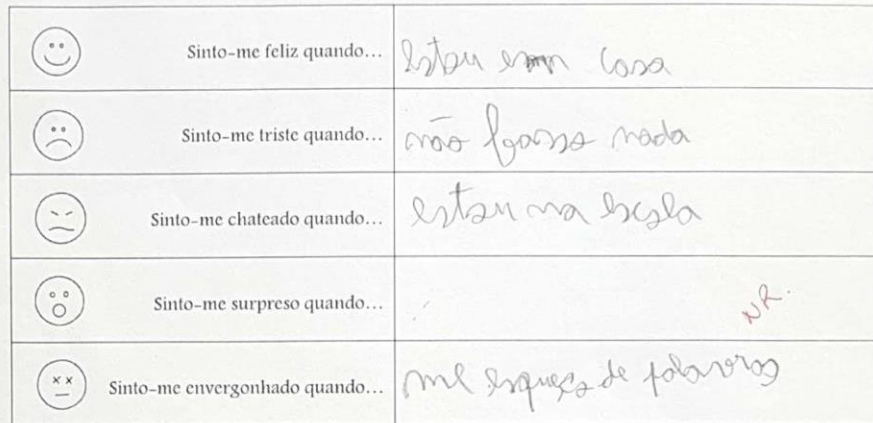 Sinto-me feliz quando... Estou em casa
Sinto-me triste quando... não fasso nada
Sinto-me chateado quando... estou na escola
Sinto-me surpreso quando... NR.
Sinto-me envergonhado quando... me esqueço de palavras